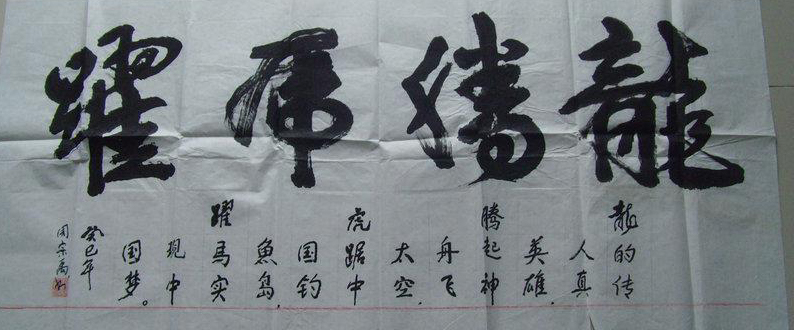 龍騰虎躍
龍的传
人真
英雄,
腾起神
舟飞
太空,
虎踞中
国钓
魚島,
躍馬实
现中
国梦。
癸巳年